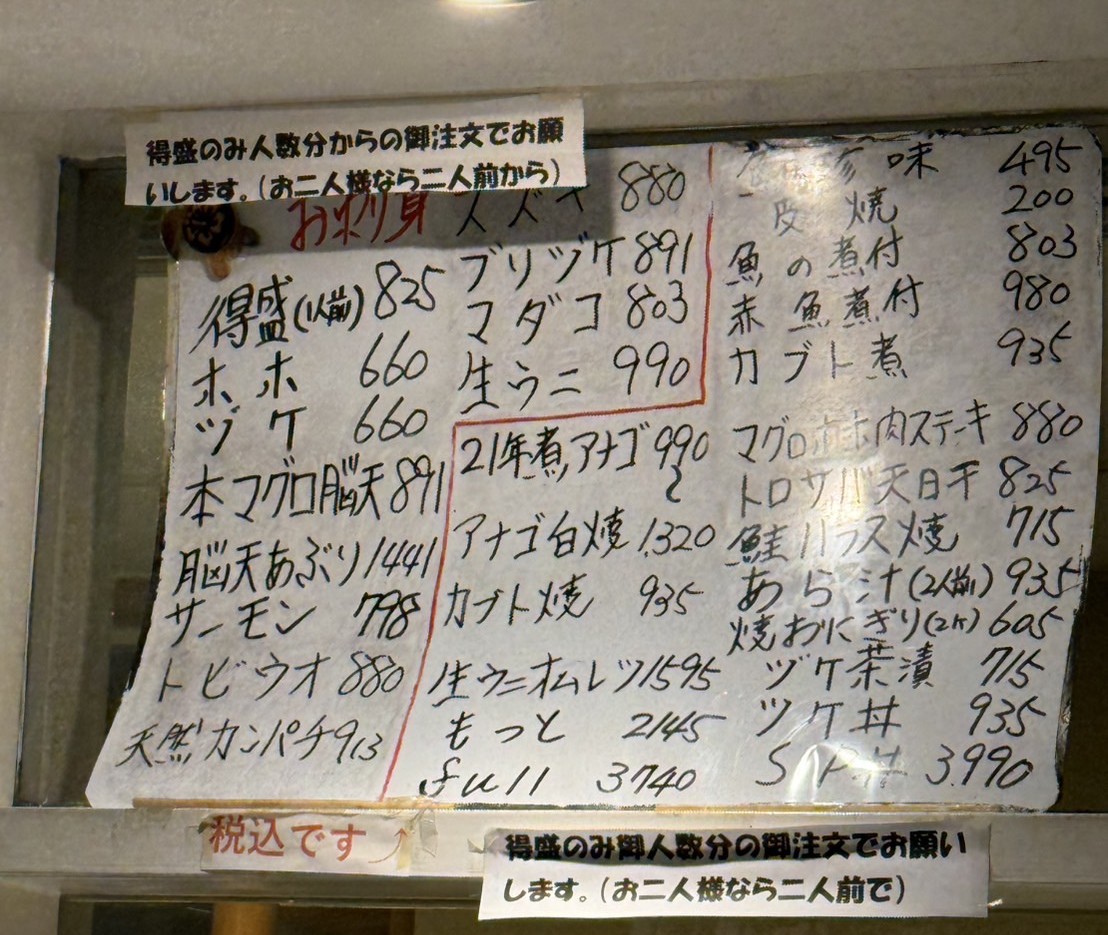 得盛のみ人数分からの御注文でお願
いします。(お二人様なら二人前から)
お刺身
得盛(1人前) 825
ホホ 660
ヅケ 660
本マグロ脳天 891
脳天あぶり 1441
サーモン 798
トビウオ 880
天然カンパチ 913
スズキ 880
ブリヅケ 891
マダコ 803
生ウニ 990
21年煮アナゴ 990
〜
アナゴ白焼 1.320
カブト焼 935
生ウニオムレツ 1595
もっと 2145
full 3740
珍味 495
皮焼 200
魚の煮付 803
赤魚煮付 980
カブト煮 935
マグロホホ肉ステーキ 880
トロサバ天日干 825
鮭ハラス焼 715
あら汁(2人前) 935
焼おにぎり(2ケ) 605
ヅケ茶漬 715
ヅケ丼 935
S P丼 3.990
税込です↑
得盛のみ御人数分の御注文でお願い
します。(お二人様なら二人前で)